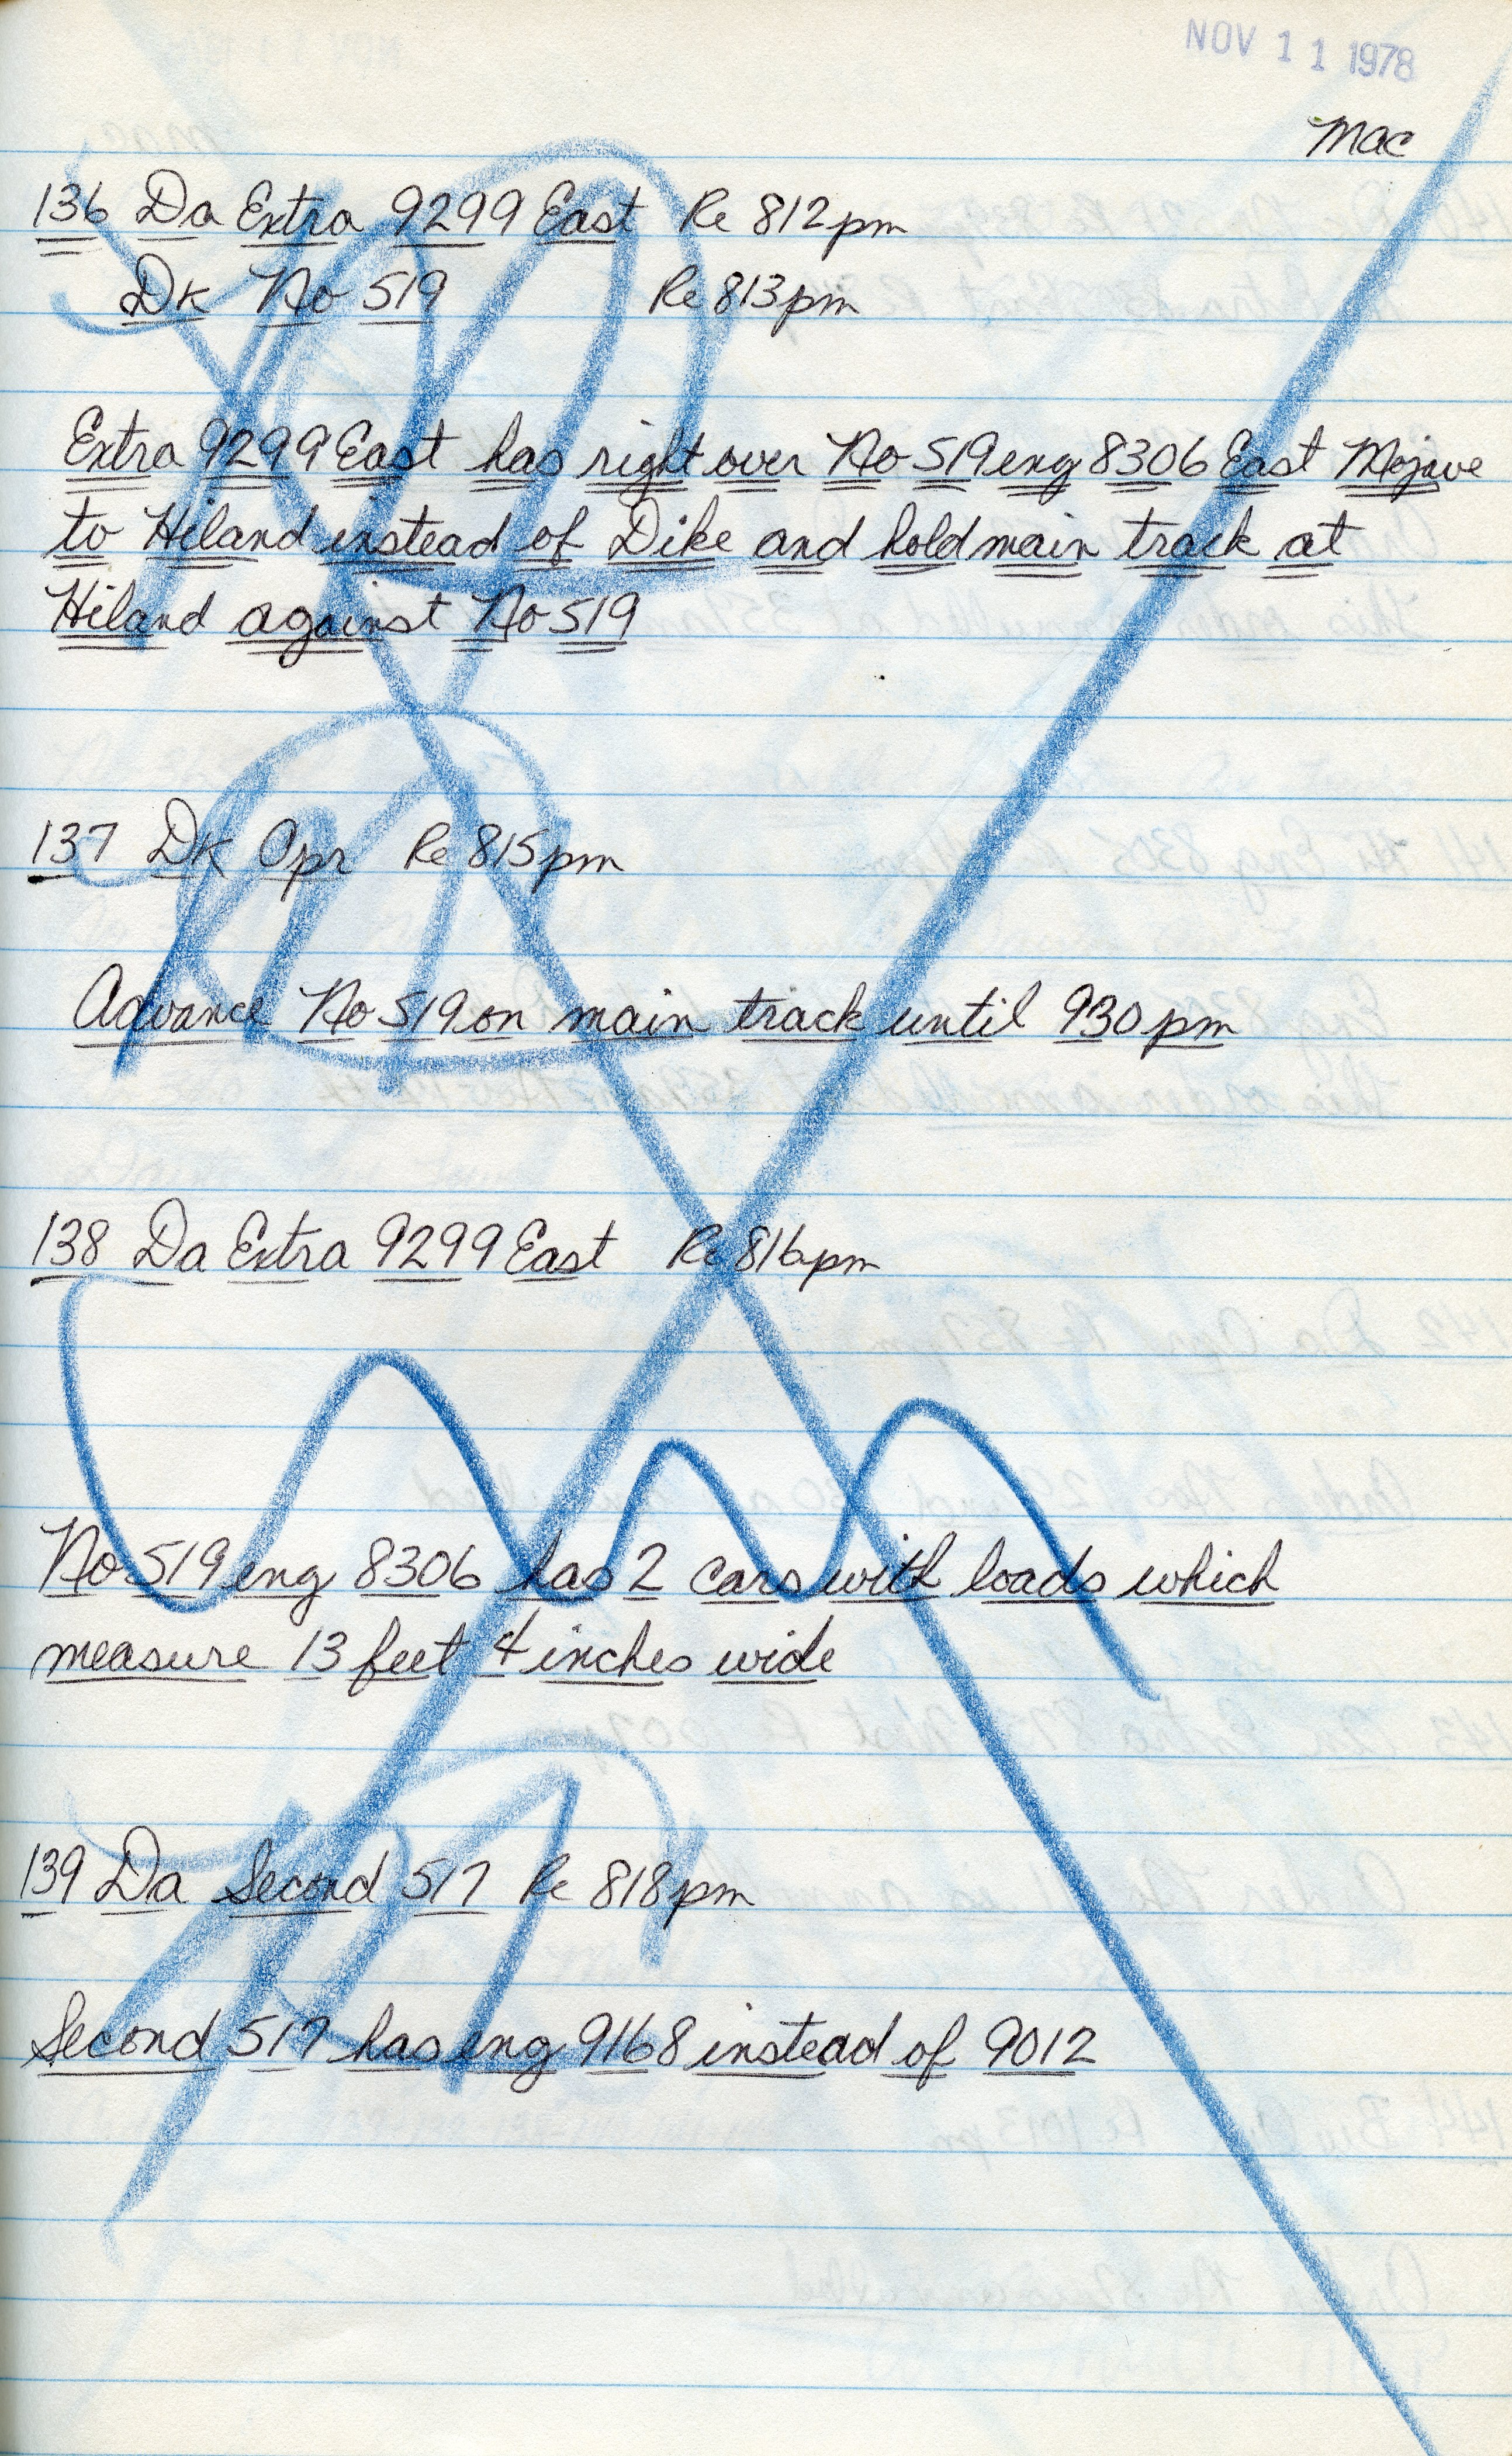 NOV 11 1978
Mac
136 Da Extra 9299 East Re 812pm
Dk No 519 Re 813pm
Extra 9299 East has right over No 519 eng 8306 East Mojave
to Hiland instead of Dike and hold main track at
Hiland against No 519
137 Dk Opr Re 815pm
Advance No 519 on main track until 930pm
138 Da Extra 9299 East Re 816pm
No 519 eng 8306 has 2 cars with loads which
measure 13 feet 4 inches wide
139 Da Second 517 Re 818pm
Second 517 has eng 9168 instead of 9012